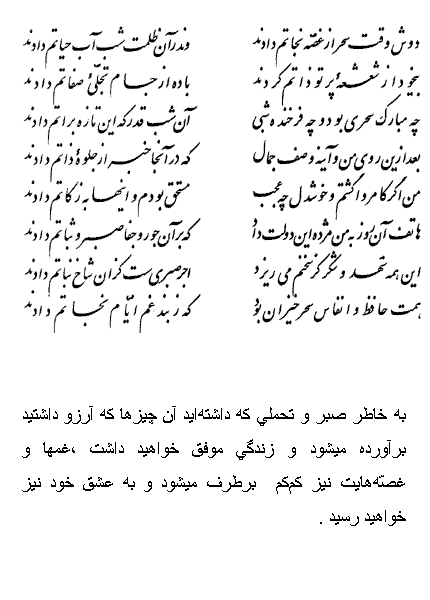 دوش وقت سحر از غصّه نجاتم دادند وندر آن ظلمت شب آب حیاتم دادند
بیخود از شعشعهٔ پرتو ذاتم کردند باده از جام تجلّی صفاتم دادند
چه مبارک سحری بود و چه فرخنده شبی آن شب قدر که این تازه براتم دادند
بعد ازین روی من و آینهٔ وصف جمال که در آنجا خبر از جلوهٔ ذاتم دادند
من اگر کامروا گشتم و خوشدل چه عجب مستحق بودم و اینها به زکاتم دادند
هاتف آن روز به من مژدهٔ این دولت داد که بر آن جور و جفا صبر و ثباتم دادند
این همه شهد و شکر کز سخنم می ریزد اجر صبریست کز آن شاخ نباتم دادند
همت حافظ و انفاس سحرخیزان بود که ز بند غم ایّام نجاتم دادند
به خاطر صبر و تحملي که داشته‌اید آن چیزها که آرزو داشتید
برآورده میشود و زندگي موفق خواهید داشت ،غمها و
غصّه‌هایت نیز کم‌کم برطرف میشود و به عشق خود نیز
خواهید رسید .